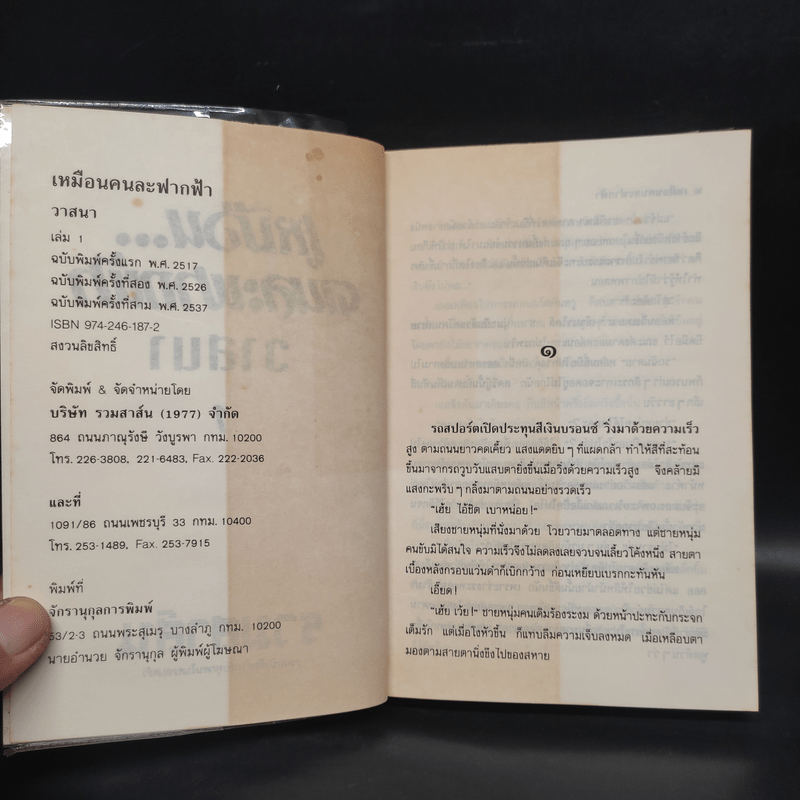 เหมือนคนละฟากฟ้า
วาสนา
เล่ม 1
ฉบับพิมพ์ครั้งแรก พ.ศ. 2517
ฉบับพิมพ์ครั้งที่สอง พ.ศ. 2526
ฉบับพิมพ์ครั้งที่สาม พ.ศ. 2537
ISBN 974-246-187-2
สงวนลิขสิทธิ์
จัดพิมพ์ & จัดจำหน่ายโดย
บริษัท รวมสาส์น (1977) จำกัด
864 ถนนภาณุรังษี วังบูรพา กทม. 10200
โทร. 226-3808, 221-6483, Fax. 222-2036
และที่
1091/86 ถนนเพชรบุรี 33 กทม. 10400
โทร. 253-1489, Fax. 253-7915
พิมพ์ที่
จักรานุกูลการพิมพ์
53/2-3 ถนนพระสุเมรุ บางลำภู กทม. 10200
นายอำนวย จักรานุกูล ผู้พิมพ์ผู้โฆษณา
๑
รถสปอร์ตเปิดประทุนสีเงินบรอนซ์ วิ่งมาด้วยความเร็ว
สูง ตามถนนยาวคดเคี้ยว แสงแดดยิบๆ ที่แผดกล้า ทำให้สีที่สะท้อน
ขึ้นมาจากรถวูบวับแสบตายิ่งขึ้นเมื่อวิ่งด้วยความเร็วสูง จึงคล้ายมี
แสงกะพริบๆ กลิ้งมาตามถนนอย่างรวดเร็ว
"เฮ้ย ไอ้ชิต เบาหน่อย!"
เสียงชายหนุ่มที่นั่งมาด้วย โวยวายมาตลอดทาง แต่ชายหนุ่ม
คนขับมิได้สนใจ ความเร็วจึงไม่ลดลงเลยจวบจนเลี้ยวโค้งหนึ่ง สายตา
เบื้องหลังกรอบแว่นดำก็เบิกกว้าง ก่อนเหยียบเบรกกะทันหัน
เอี๊ยด!
"เฮ้ย เว้ย!" ชายหนุ่มคนเดิมร้องระงม ด้วยหน้าปะทะกับกระจก
เต็มรัก แต่เมื่อโงหัวขึ้น ก็แทบลืมความเจ็บลงหมด เมื่อเหลือบตา
มองตามสายตานิ่งขึงไปของสหาย